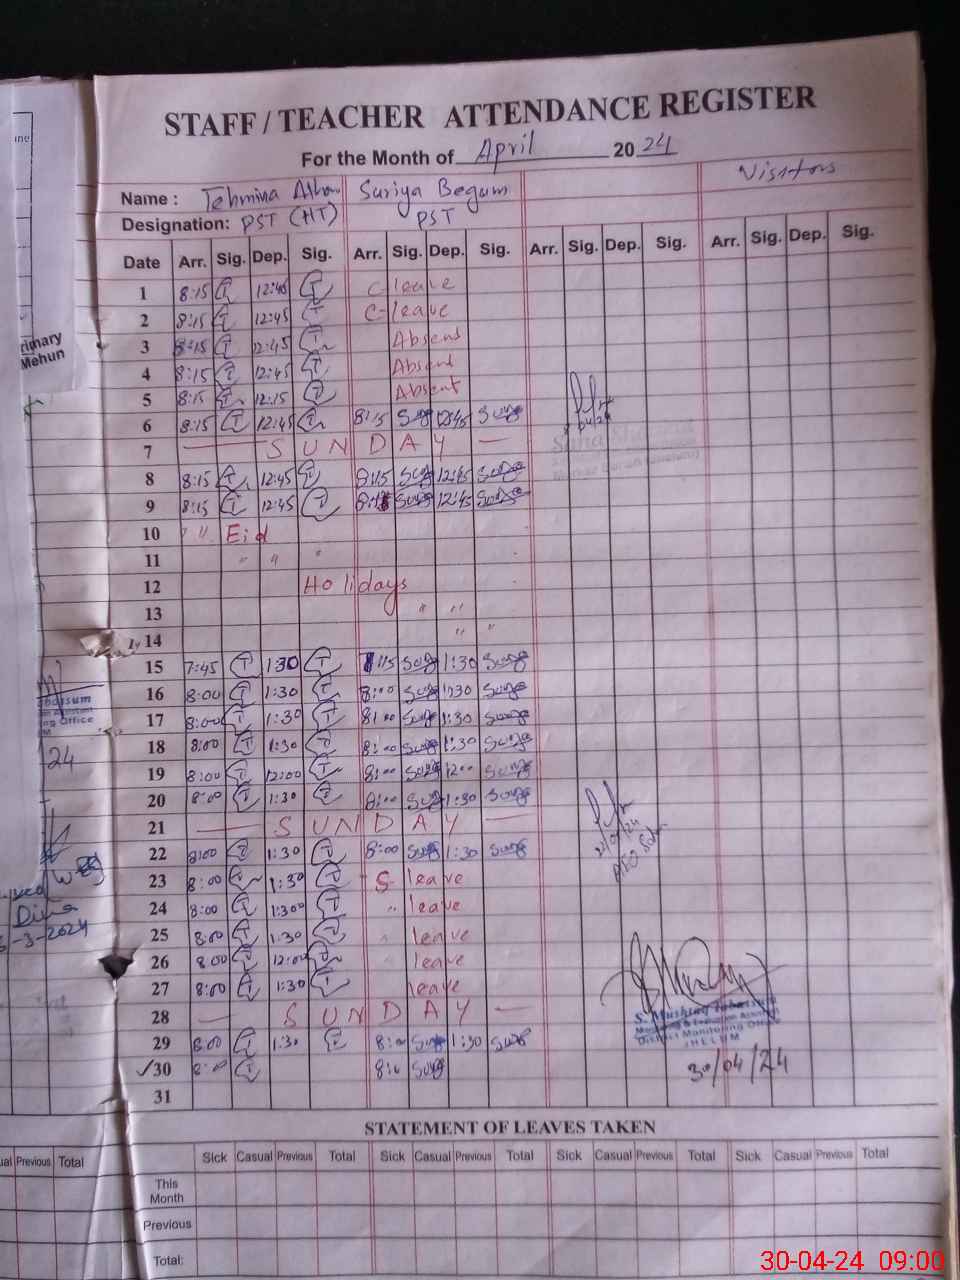 STAFF / TEACHER ATTENDANCE REGISTER
For the Month of April 2024
Visitors
Name : Tehmina Suriya Begum
Designation: PST (HT) PST
Date Arr. Sig. Dep. Sig. Arr. Sig. Dep. Sig. Arr. Sig. Dep. Sig. Arr. Sig. Dep. Sig.
1 8:15 T 12:45 T C leave
2 8:15 T 12:45 T C-leave
3 8:15 T 12:45 T Absent
4 8:15 T 12:45 T Absent
5 8:15 T 12:15 T Absent
6 8:15 T 12:45 T 8:15 12:45
7 SUNDAY
8 8:15 T 12:45 T 8:15 12:45
9 8:15 T 12:45 T 8:15 12:45
10 " Eid
11 " " "
12 Holidays
13 " "
14 " "
15 7:45 T 1:30 T 1:30
16 8:00 T 1:30 T 8:00 1:30
17 8:00 T 1:30 T 8:00 1:30
18 8:00 T 1:30 T 8:00 1:30
19 8:00 T 12:00 T 8:00 12:00
20 8:00 T 1:30 T 8:00 1:30
21 SUNDAY
22 8:00 T 1:30 T 8:00 1:30
23 8:00 T 1:30 T S- leave
24 8:00 T 1:30 T " leave
25 8:00 T 1:30 T " leave
26 8:00 T 12:00 T " leave
27 8:00 T 1:30 T leave
28 SUNDAY
29 8:00 T 1:30 T 8:00 1:30
30 8:00 T
31
District Monitoring Office
JHELUM
30/04/24
STATEMENT OF LEAVES TAKEN
Sick Casual Previous Total Sick Casual Previous Total Sick Casual Previous Total Sick Casual Previous Total
This Month
Previous
Total:
rimary
Mehun
ng Office
24
Dina
-3-2024
Previous Total
30-04-24 09:00